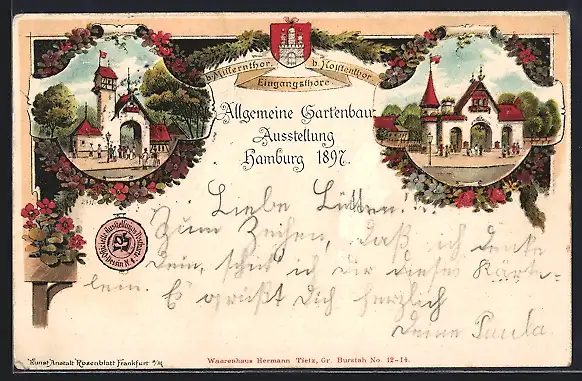 b. Millernthor.
b. Holstenthor.
Eingangsthore.
Allgemeine Gartenbau-
Ausstellung
Hamburg 1897.
Liebe
Zum Zeichen, daß ich denke
Dein, schick ich dir dieses Kärt-
lein. Es grüßt Dich herzlich
Deine Paula.
Kunst Anstalt Rosenblatt Frankfurt a/M
Waarenhaus Hermann Tietz, Gr. Burstah No. 12-14.